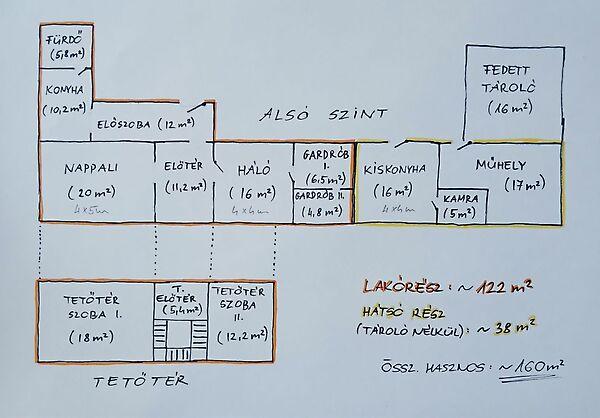 FÜRDŐ
(5,8 m²)
KONYHA
(10,2 m²)
ELŐSZOBA (12 m²)
ALSÓ SZINT
FEDETT
TÁROLÓ
(16 m²)
NAPPALI
(20 m²)
4x5m
ELŐTÉR
(11,2 m²)
HÁLÓ
(16 m²)
4x4m
GARDRÓB
I.
(6,5 m²)
GARDRÓB II.
(4,8 m²)
KISKONYHA
(16 m²)
4x4m
KAMRA
(5 m²)
MŰHELY
(17 m²)
TETŐTÉR
SZOBA I.
(18 m²)
T.
ELŐTÉR
(5,4 m²)
TETŐTÉR
SZOBA
II.
(12,2 m²)
TETŐTÉR
LAKÓRÉSZ: ~ 122 m²
HÁTSÓ RÉSZ
(TÁROLÓ NÉLKÜL): ~ 38 m²
ÖSSZ. HASZNOS: ~160 m²